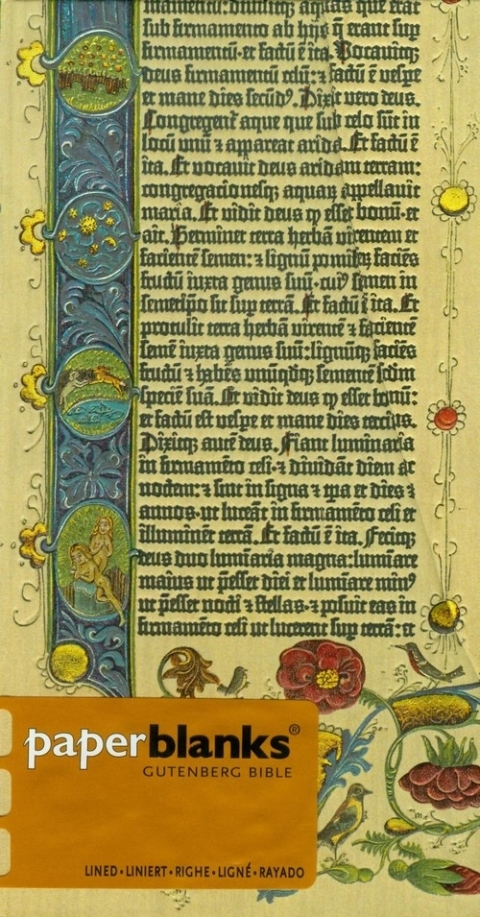 sub firmamento ab hijs q̄ erant sup
firmamentū· et factū ē ita. Vocauitqꝫ
deus firmamentū celū: ⁊ factū ē vespe
et mane dies secūdꝰ. Dixit vero deus.
Congregent̄ aque que sub celo sūt in
locū vnū ⁊ appareat arida. Et factū ē
ita. Et vocauit deus aridam terram:
congregacionesqꝫ aquaꝝ appellauit
maria. Et vidit deus ꝙ esset bonū· et
ait. Germinet terra herbā virentem et
facientē semen: ⁊ lignū pomifeꝝ faciēs
fructū iuxta genus suū· cuiꝰ semen in
semetip̄o sit sup terrā. Et factū ē ita. Et
protulit terra herbā virentē ⁊ facientē
semē iuxta genus suū: lignūqꝫ faciēs
fructū ⁊ habēs vnūqdqꝫ sementē scdm
speciē suā. Et vidit deus ꝙ esset bonū:
et factū est vespe et mane dies tercius.
Dixitqꝫ autē deus. Fiant luminaria
in firmamēto celi· ⁊ diuidāt diem ac
noctem: ⁊ sint in signa ⁊ tp̄a et dies ⁊
annos· ut luceāt in firmamēto celi et
illuminēt terrā. Et factū ē ita. Fecitqꝫ
deus duo lumīaria magna: lumīare
maius ut p̄esset diei et lumīare minꝰ
ut p̄esset nocti ⁊ stellas· ⁊ posuit eas in
firmamēto celi ut lucerent sup terrā: et
paperblanks®
GUTENBERG BIBLE
LINED • LINIERT • RIGHE • LIGNÉ • RAYADO